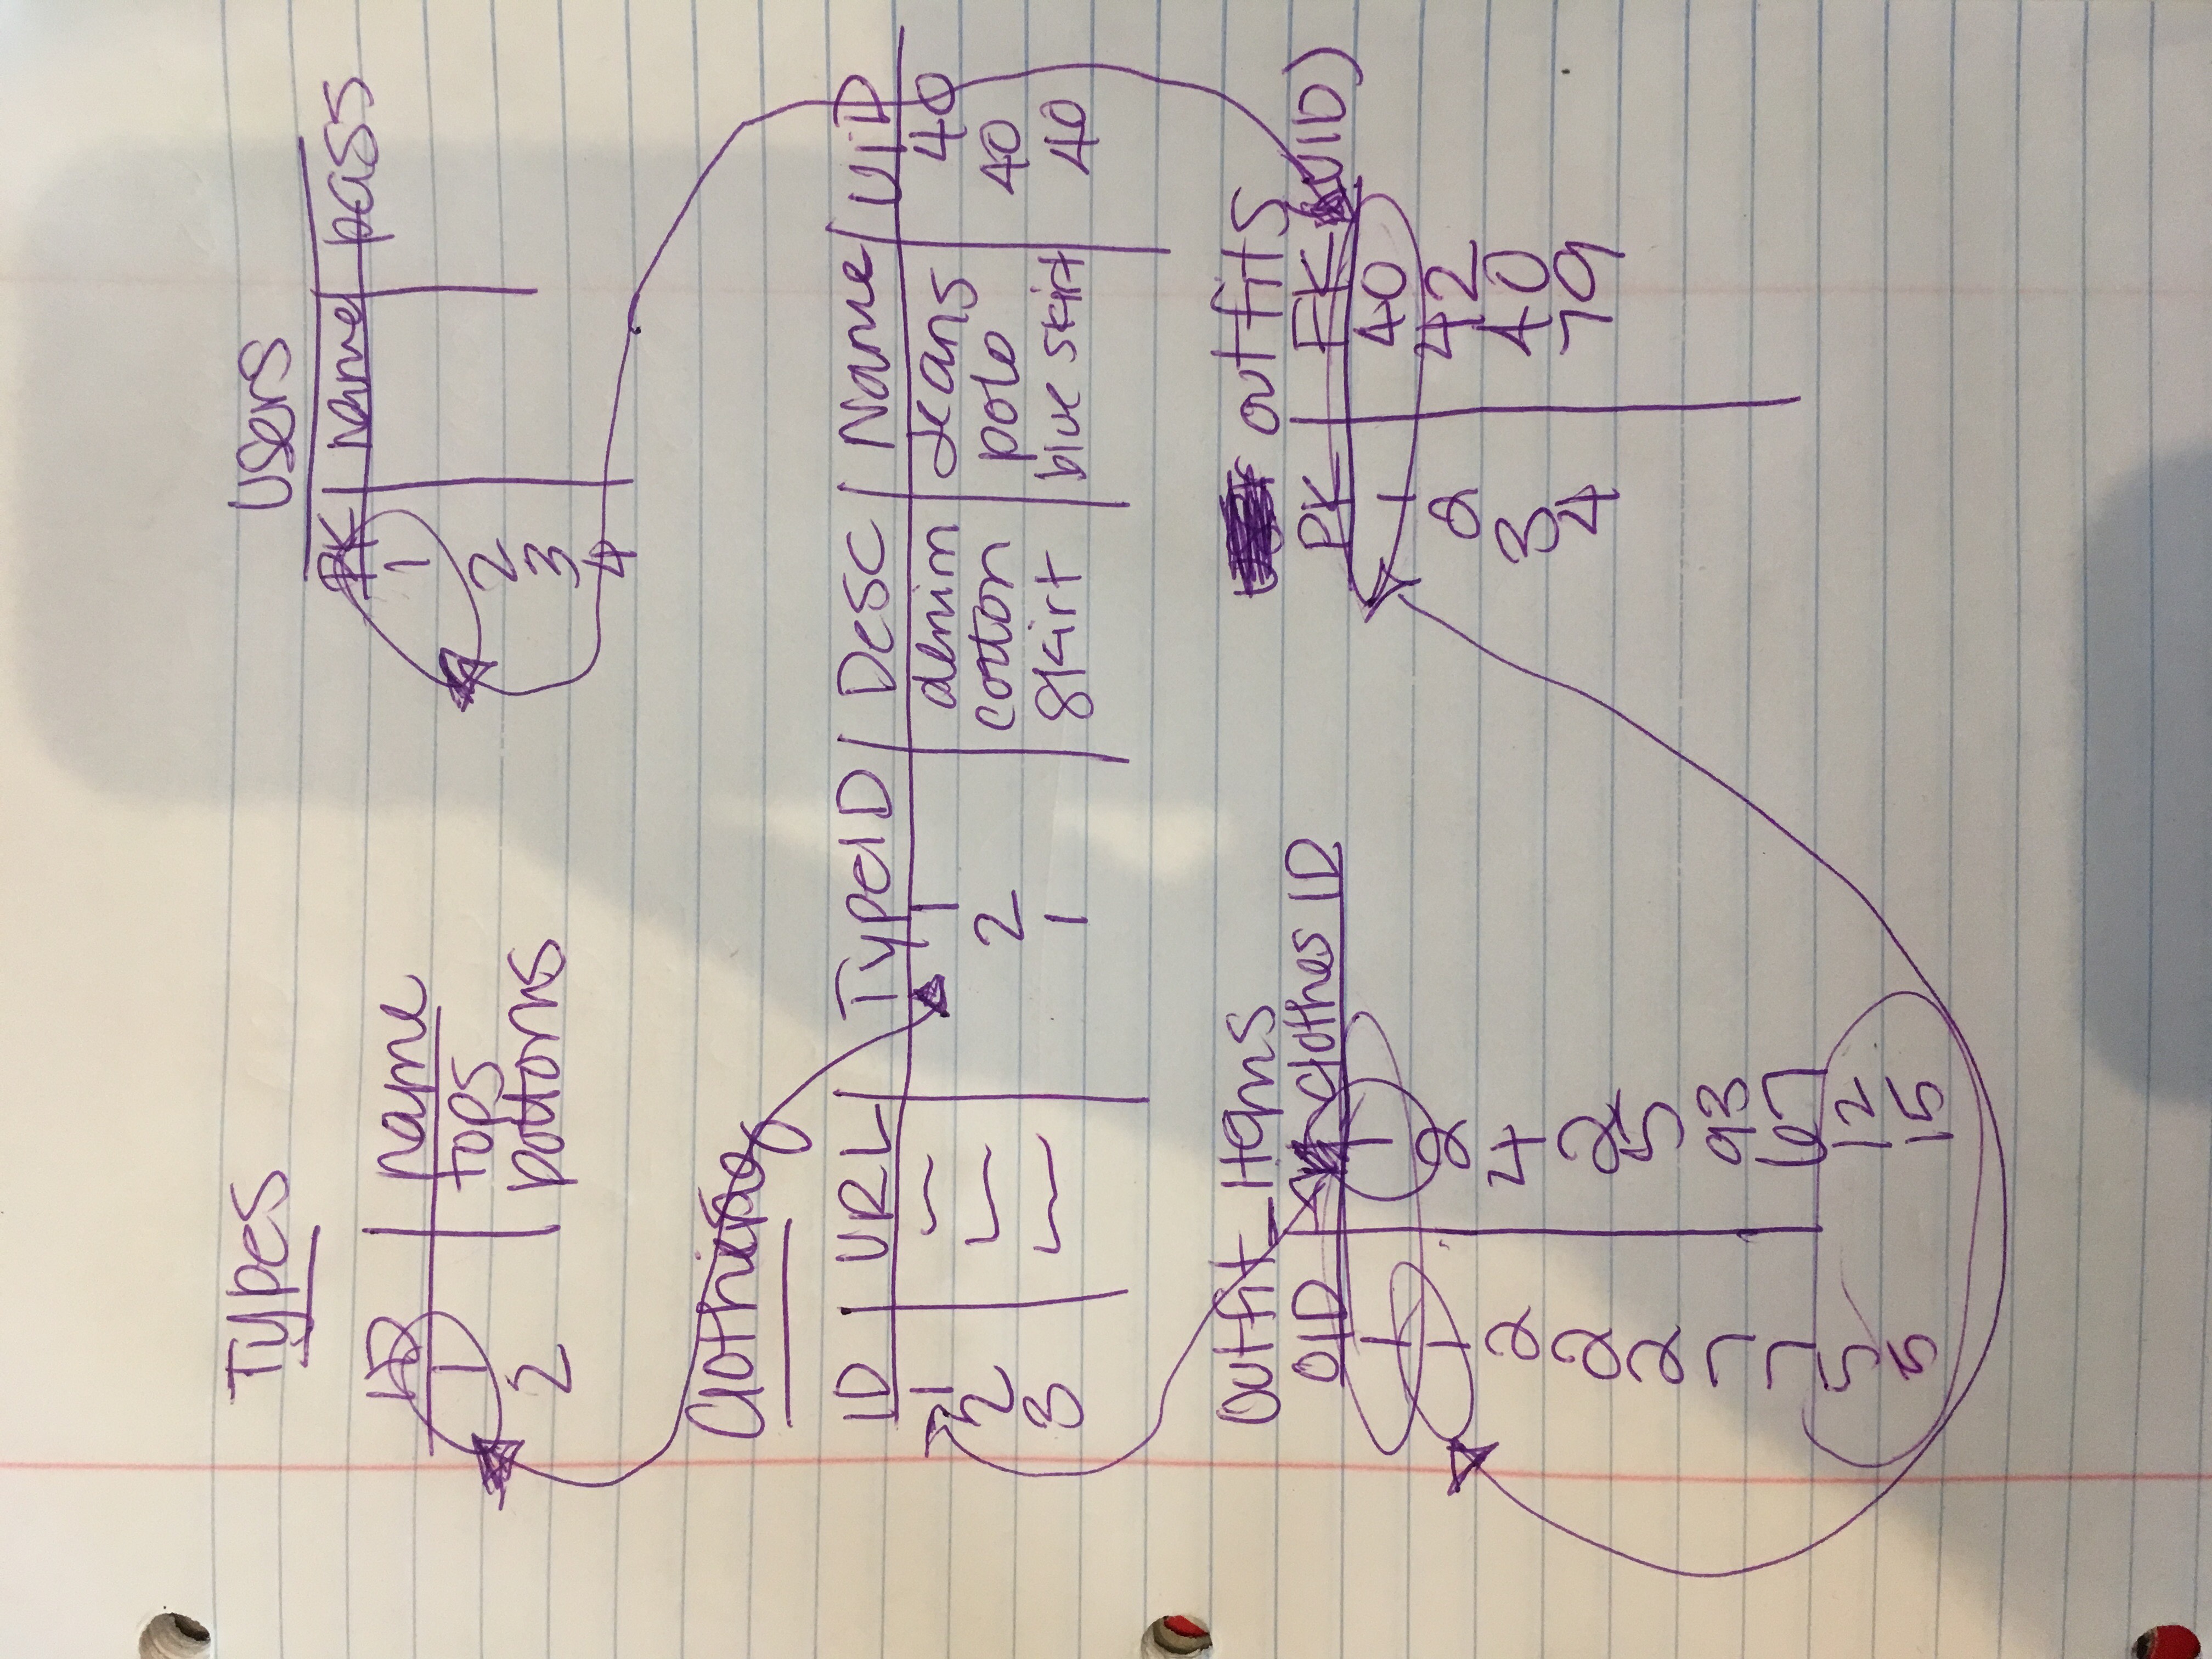 Types
ID name
1 tops
2 bottoms
Users
PK name pass
1
2
3
4
Clothing
ID URL TypeID Desc Name UiD
1 1 denim Jeans 40
2 2 cotton polo 40
3 1 skirt blue skirt 40
Outfit_Items
OID clothes ID
1 1
1 2
2 4
2 2
2 5
7 93
7 67
5 12
5 15
outfits
PK FK (UID)
1 40
2 42
3 40
4 79